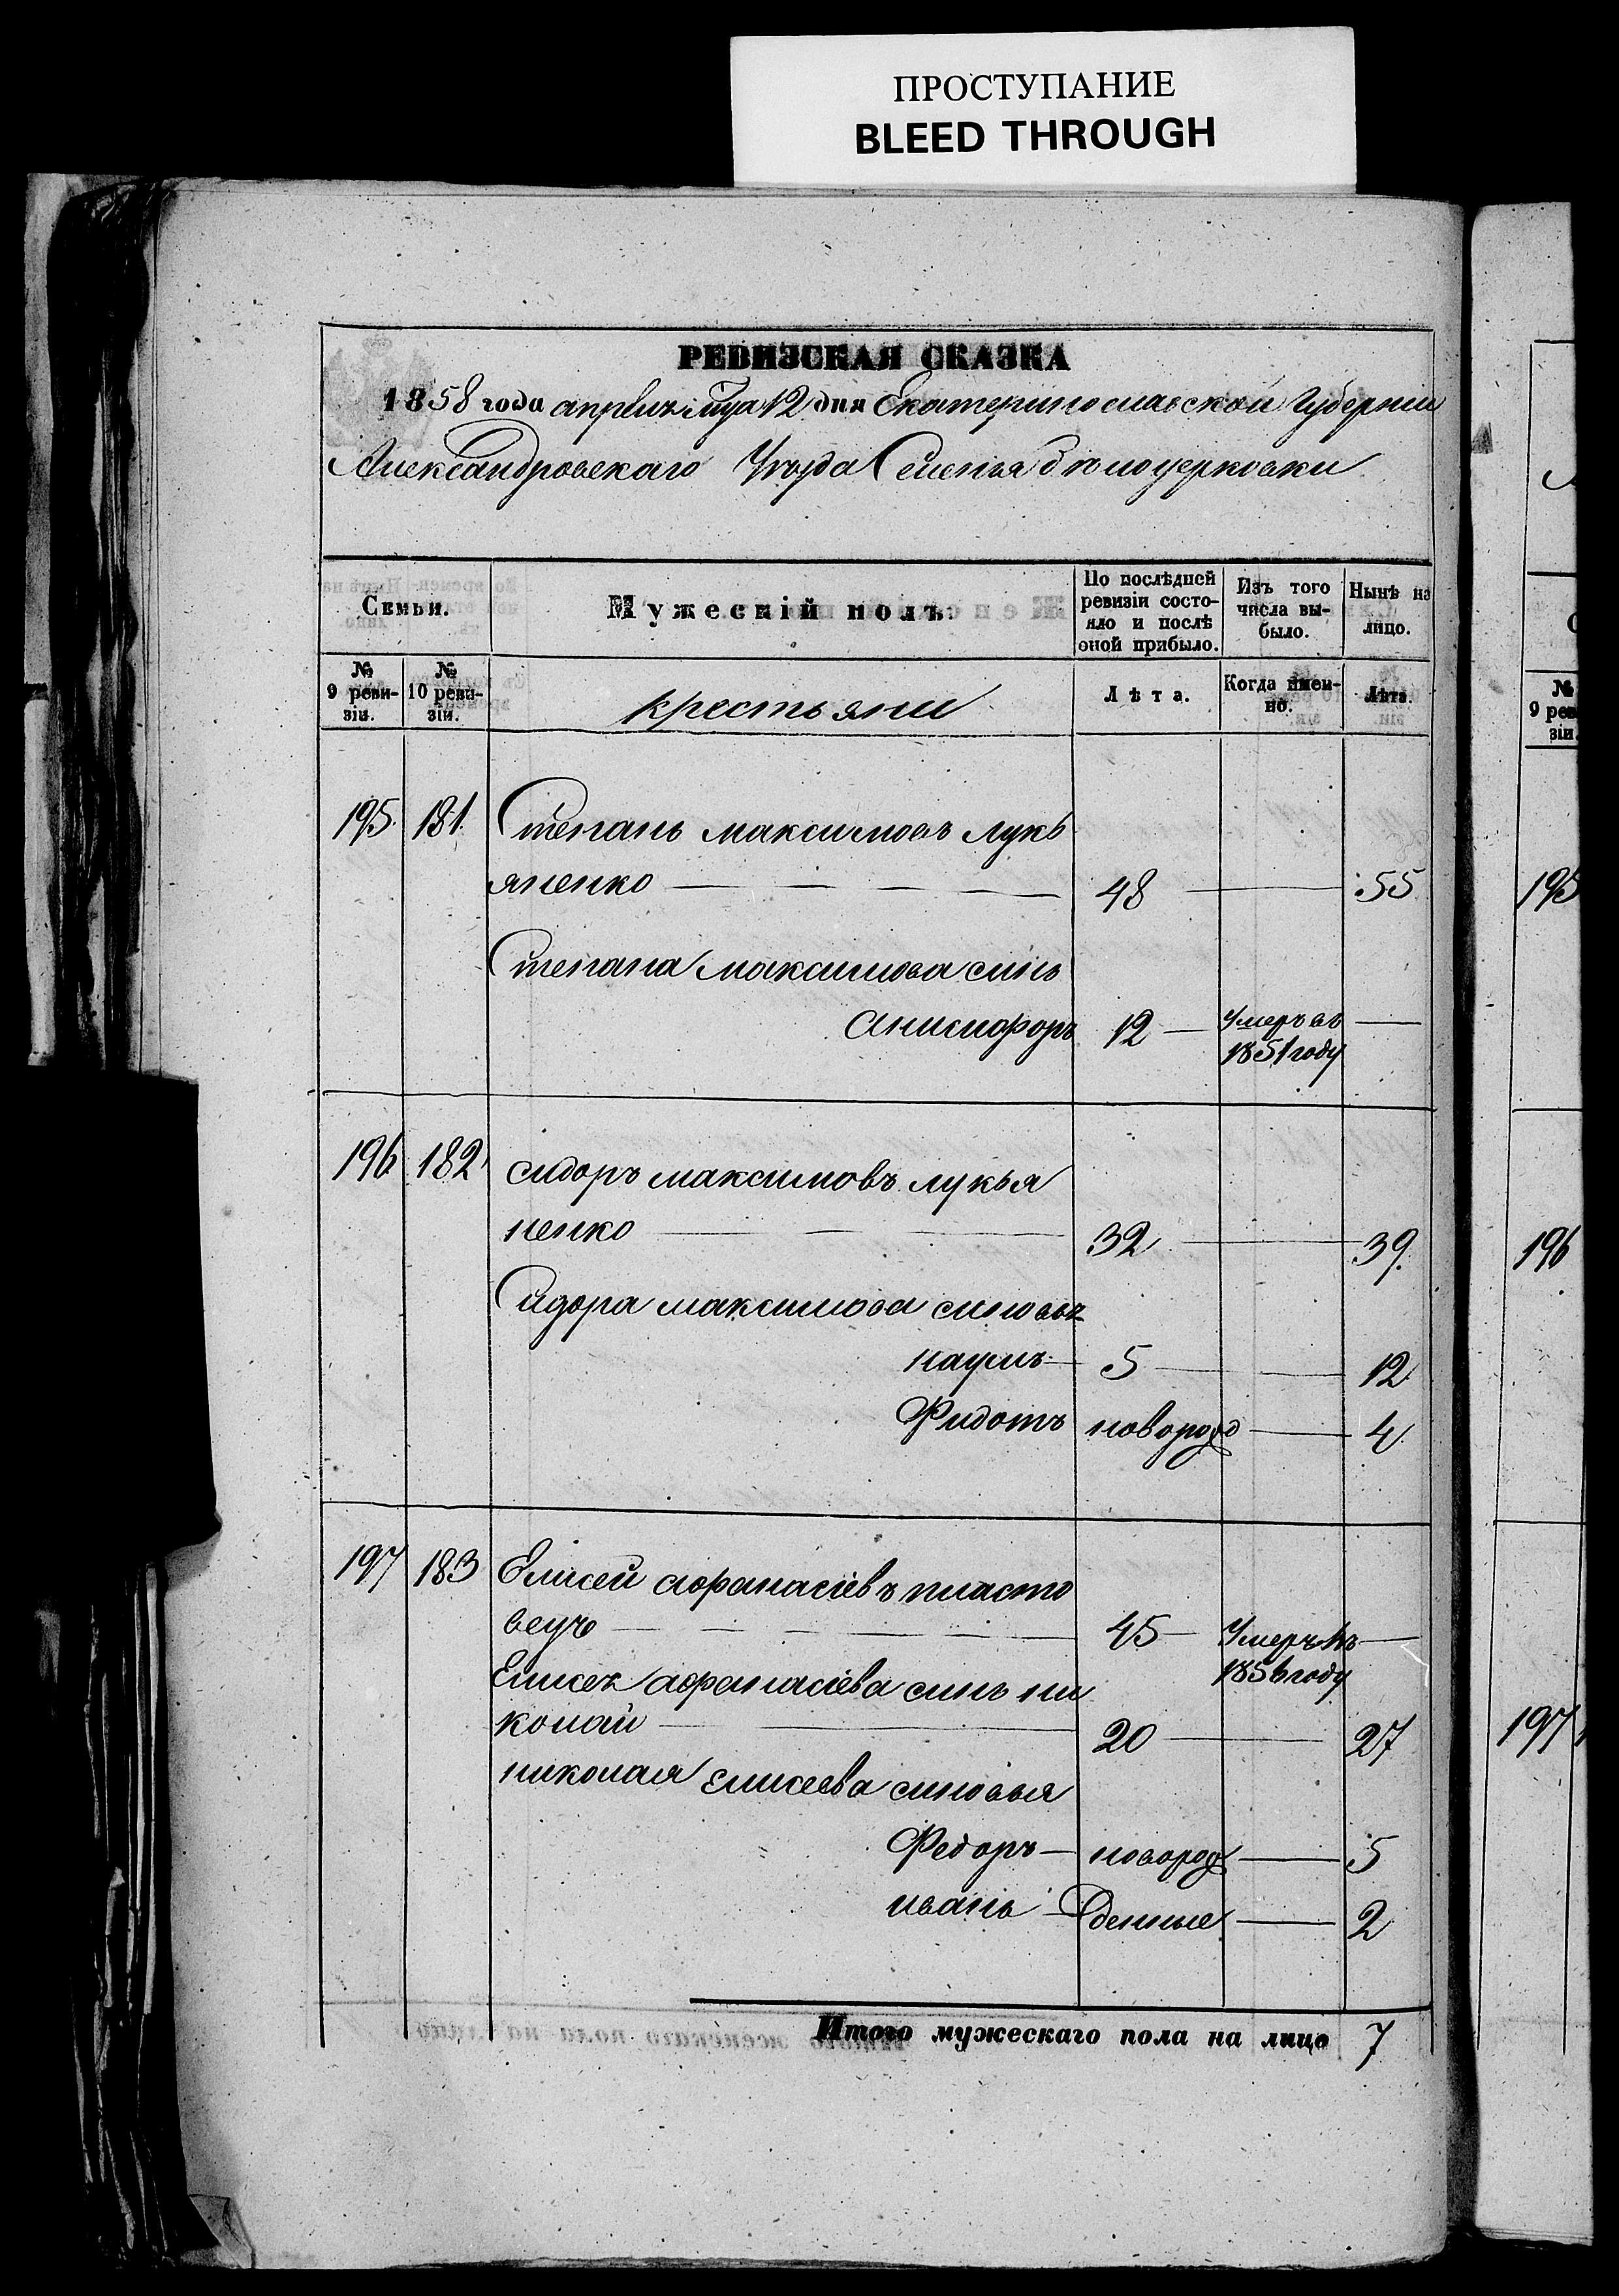 ПРОСТУПАНИЕ
BLEED THROUGH
РЕВИЗСКАЯ СКАЗКА
1858 года апреля мца 12 дня Екатеринославской губерніи
Александровскаго Уезда Селенія Бѣлоцерковки
Семьи.
Мужескій полъ.
По послѣдней ревизіи состояло и послѣ оной прибыло.
Изъ того числа выбыло.
Нынѣ на лицо.
№ 9 ревизіи.
№ 10 ревизіи.
крестьяни
Лѣта.
Когда именно.
Лѣта.
195 181 Степанъ максимовъ лукь
яненко 48 55
Степана максимова синъ
Анисифоръ 12 Умеръ въ 1851 году
196 182 сидоръ максимовъ лукья
ненко 32 39
Сидора максимова синовья
наумъ 5 12
Фидотъ новорожд 4
197 183 Елисей афанасіевъ пласто
вецъ 45 Умеръ въ 1856 году
Елисея афанасіева синъ ни
колай 20 27
николая Елисеева синовья
Федоръ новорож 5
иванъ денные 2
Итого мужескаго пола на лицо 7
№ 9 реви
зіи.
195
196
197